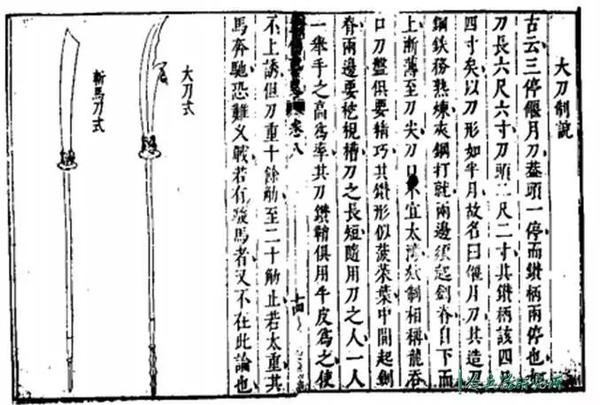 大刀制說
古云三停偃月刀蓋頭一停而鐏柄兩停也
刀長六尺六寸刀頭二尺二寸其鐏柄該四
四寸矣以刀形如半月故名曰偃月刀其造刀
鋼鉄務熟煉夾鋼打就兩邊須起劍脊自下而
上漸薄至刀尖刀口宜太制相稱龍吞
口刀盤俱要精巧其鐏形似菠菜葉中間起劍
脊兩邊要槽刀之長短隨用刀之人一人
一乗手之高爲率其刀鐏鞘俱用牛皮爲之使
卷八
十四
不上誘但刀重十餘觔至二十觔止若太重其
馬奔馳恐難乂戰若有發馬者又不在此論也
大刀式
斬馬刀式